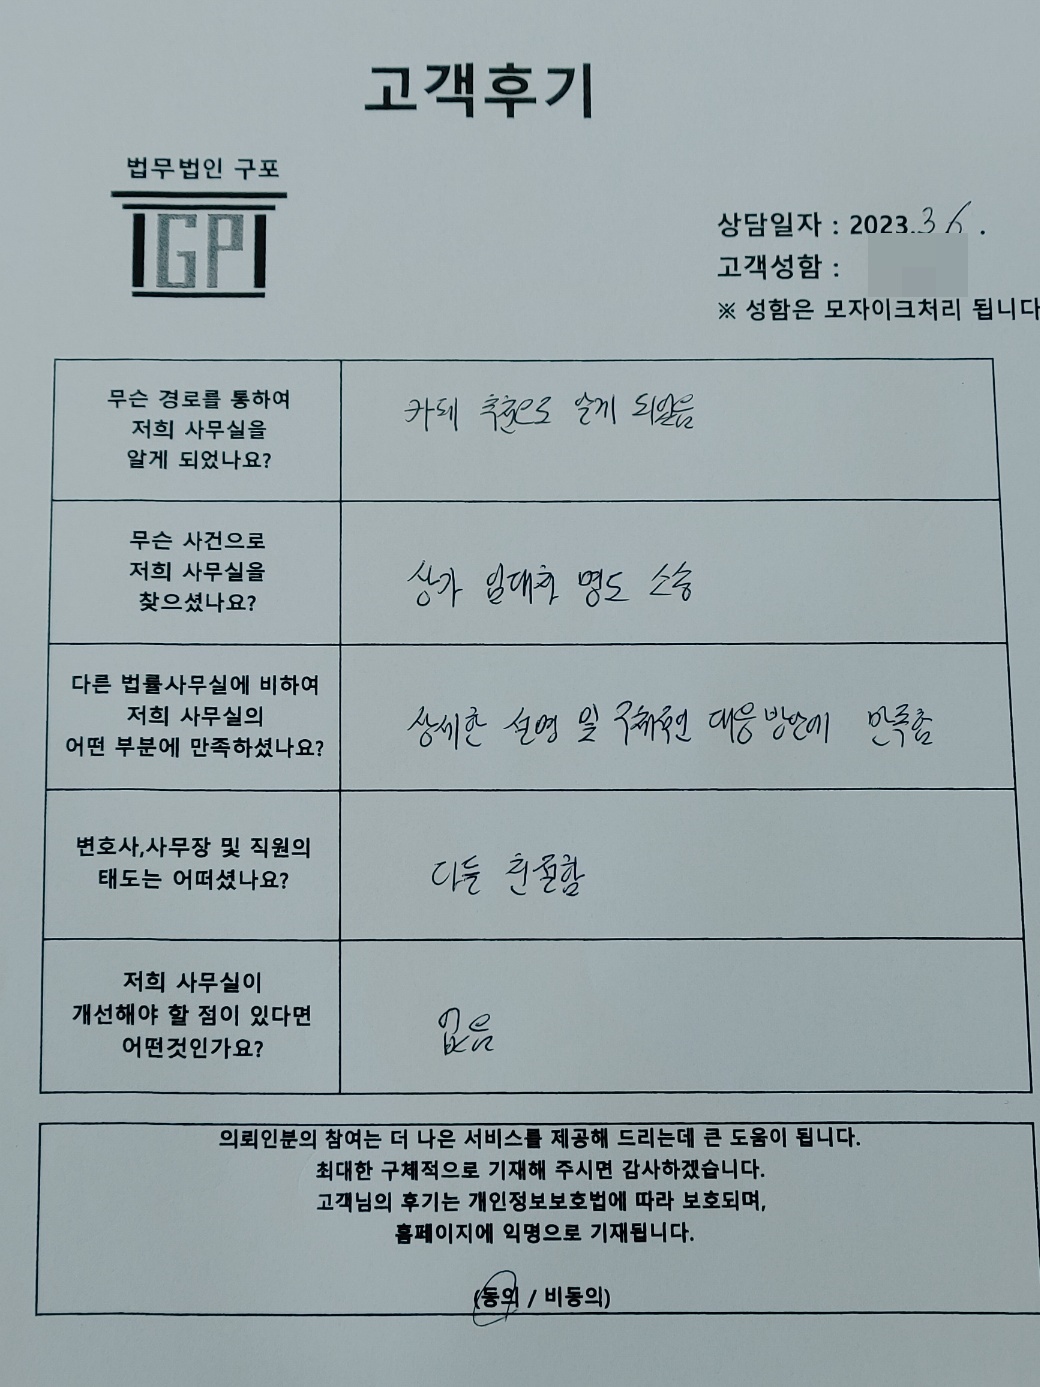 고객후기
법무법인 구포
GP
상담일자 : 2023.3 6 .
고객성함 :
※ 성함은 모자이크처리 됩니다
무슨 경로를 통하여
저희 사무실을
알게 되었나요?
카페 추천으로 알게 되었음
무슨 사건으로
저희 사무실을
찾으셨나요?
상가 임대차 명도 소송
다른 법률사무실에 비하여
저희 사무실의
어떤 부분에 만족하셨나요?
상세한 설명 및 구체적인 대응방안에 만족함
변호사,사무장 및 직원의
태도는 어떠셨나요?
다들 친절함
저희 사무실이
개선해야 할 점이 있다면
어떤것인가요?
없음
의뢰인분의 참여는 더 나은 서비스를 제공해 드리는데 큰 도움이 됩니다.
최대한 구체적으로 기재해 주시면 감사하겠습니다.
고객님의 후기는 개인정보보호법에 따라 보호되며,
홈페이지에 익명으로 기재됩니다.
(동의 / 비동의)